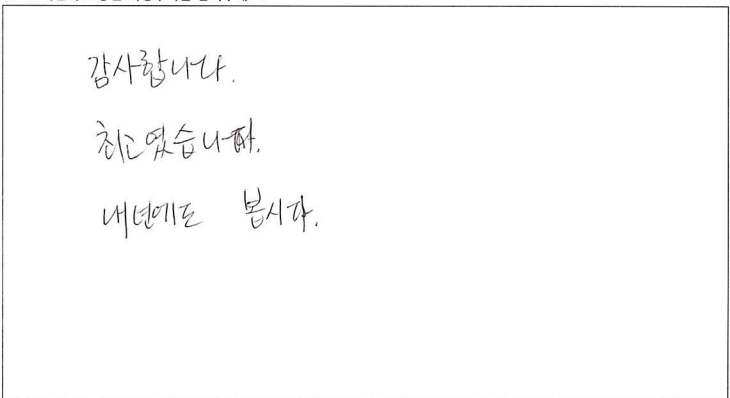 감사합니다.
최고였습니다.
내년에도 봅시다.